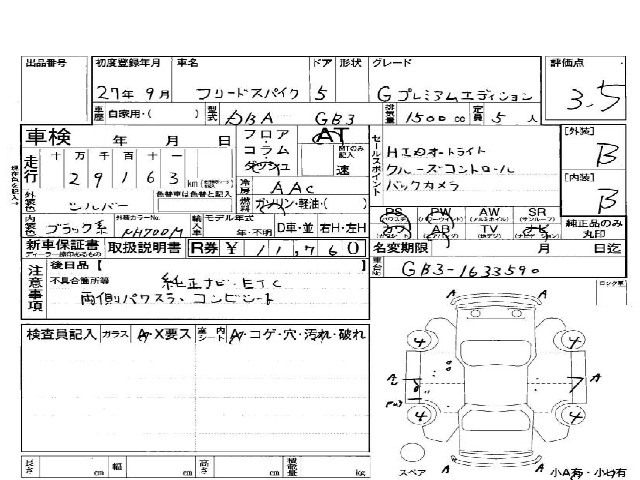 出品番号 初度登録年月 車名 ドア 形状 グレード 評価点
27年9月 フリードスパイク 5 Gプレミアムエディション 3.5
車歴 自家用・( ) 型式 DBA GB3 排気量 1500 cc 定員 5 人
車検 年 月 日 フロア・コラム・ダッシュ AT MTのみ記入 速 セールスポイント HIDオートライト
クルーズコントロール
バックカメラ
[外装] B
[内装] B
走行 十 万 千 百 十 一
29163 km
冷房 AAC
外装色 シルバー 色替車は色替と記入 燃料 ガソリン・軽油・( )
内装色 ブラック系 外装カラーNo. NH700M 輸入車 モデル年式 年・不明 D車・並 右H・左H
PS PW AW SR
カワ AB TV ナビ
純正品のみ丸印
新車保証書 取扱説明書 R券 ¥ 11,760 名変期限 月 日迄
注意事項 後日品【 】 車台No. GB3-1633590
不具合箇所等 純正ナビ・ETC
両側パワスラ、コンビシート
検査員記入 ガラス A・X要ス 室内シート A・コゲ・穴・汚れ・破れ
A
4 4
A A
7
4 4
A
スペア 小A有・小U有
長さ cm 幅 cm 高さ cm 積載量 kg